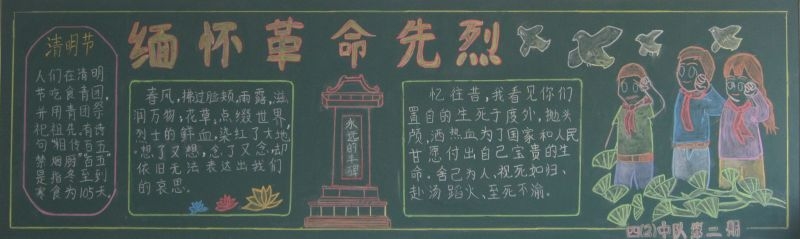 缅怀革命先烈
清明节
人们在清明
节吃食青团,
并用青团祭
祀祖先。有诗
句"相传百五
禁烟厨"百五
是指冬至到
寒食为105天。
春风,拂过脸颊,雨露,滋
润万物,花草,点缀世界,
烈士的鲜血,染红了大地。
想了又想,念了又念,却
依旧无法表达出我们
的哀思。
永远的丰碑
忆往昔,我看见你们
置自的生死于度外,抛头
颅,洒热血为了国家和人民
甘愿付出自己宝贵的生
命。舍己为人,视死如归、
赴汤蹈火、至死不渝。
四(2)中队第二期